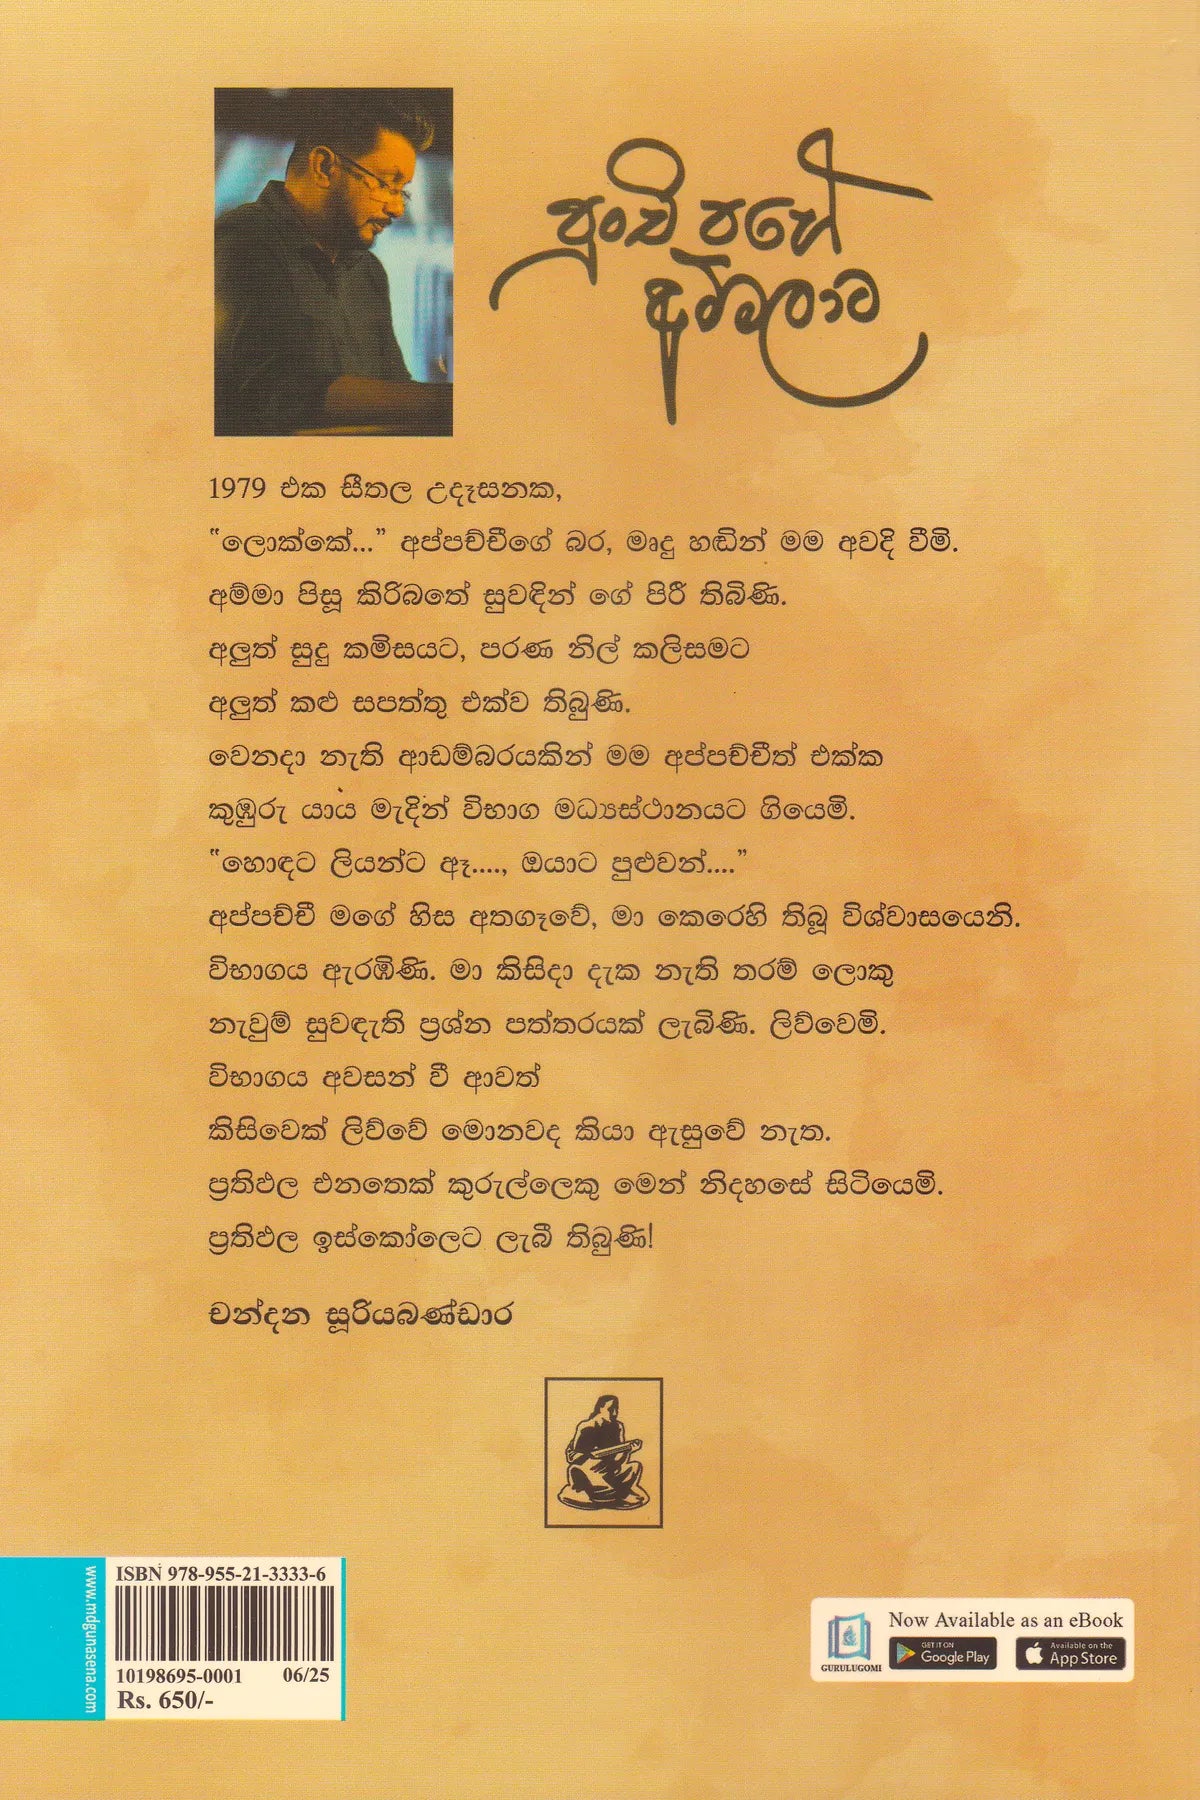 පුංචි පහේ
අම්බලාට
1979 එක සීතල උදෑසනක,
“ලොක්කේ...” අප්පච්චීගේ බර, මෘදු හඬින් මම අවදි වීමි.
අම්මා පිසූ කිරිබතේ සුවඳින් ගේ පිරී තිබිණි.
අලුත් සුදු කමිසයට, පරණ නිල් කලිසමට
අලුත් කළු සපත්තු එක්ව තිබුණි.
වෙනදා නැති ආඩම්බරයකින් මම අප්පච්චීත් එක්ක
කුඹුරු යාය මැදින් විභාග මධ්‍යස්ථානයට ගියෙමි.
“හොඳට ලියන්ට ඈ...., ඔයාට පුළුවන්....”
අප්පච්චී මගේ හිස අතගෑවේ, මා කෙරෙහි තිබූ විශ්වාසයෙනි.
විභාගය ඇරඹිණි. මා කිසිදා දැක නැති තරම් ලොකු
නැවුම් සුවඳැති ප්‍රශ්න පත්තරයක් ලැබිණි. ලිව්වෙමි.
විභාගය අවසන් වී ආවත්
කිසිවෙක් ලිව්වේ මොනවද කියා ඇසුවේ නැත.
ප්‍රතිඵල එනතෙක් කුරුල්ලෙකු මෙන් නිදහසේ සිටියෙමි.
ප්‍රතිඵල ඉස්කෝලෙට ලැබී තිබුණි!
චන්දන සූරියබණ්ඩාර
www.mdgunasena.com
ISBN 978-955-21-3333-6
10198695-0001 06/25
Rs. 650/-
Now Available as an eBook
GURULUGOMI
GET IT ON
Google Play
Available on the
App Store